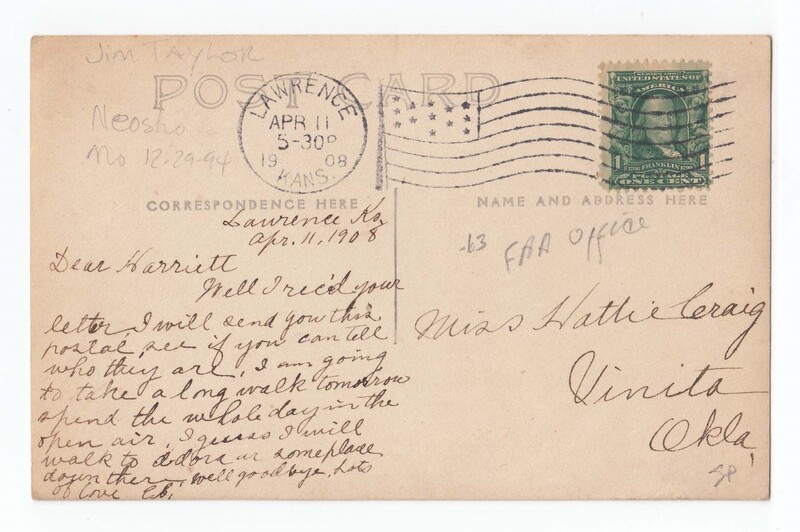 Jim Taylor
POST CARD
Neosho
Mo 12-29-94
LAWRENCE
APR 11
5-30P
1908
KANS.
SERIES 1902
UNITED STATES OF
AMERICA
1 FRANKLIN 1
POSTAGE
ONE CENT
CORRESPONDENCE HERE
NAME AND ADDRESS HERE
Lawrence Ks,
Apr. 11, 1908
Dear Harriett
Well I rec'd your
letter, I will send you this
postal, see if you can tell
who they are, I am going
to take a long walk tomorrow
spend the whole day in the
open air, I guess I will
walk to or someplace
down there, well goodbye, Lots
of love
-63 FAA Office
Miss Hattie Craig
Vinita
Okla,